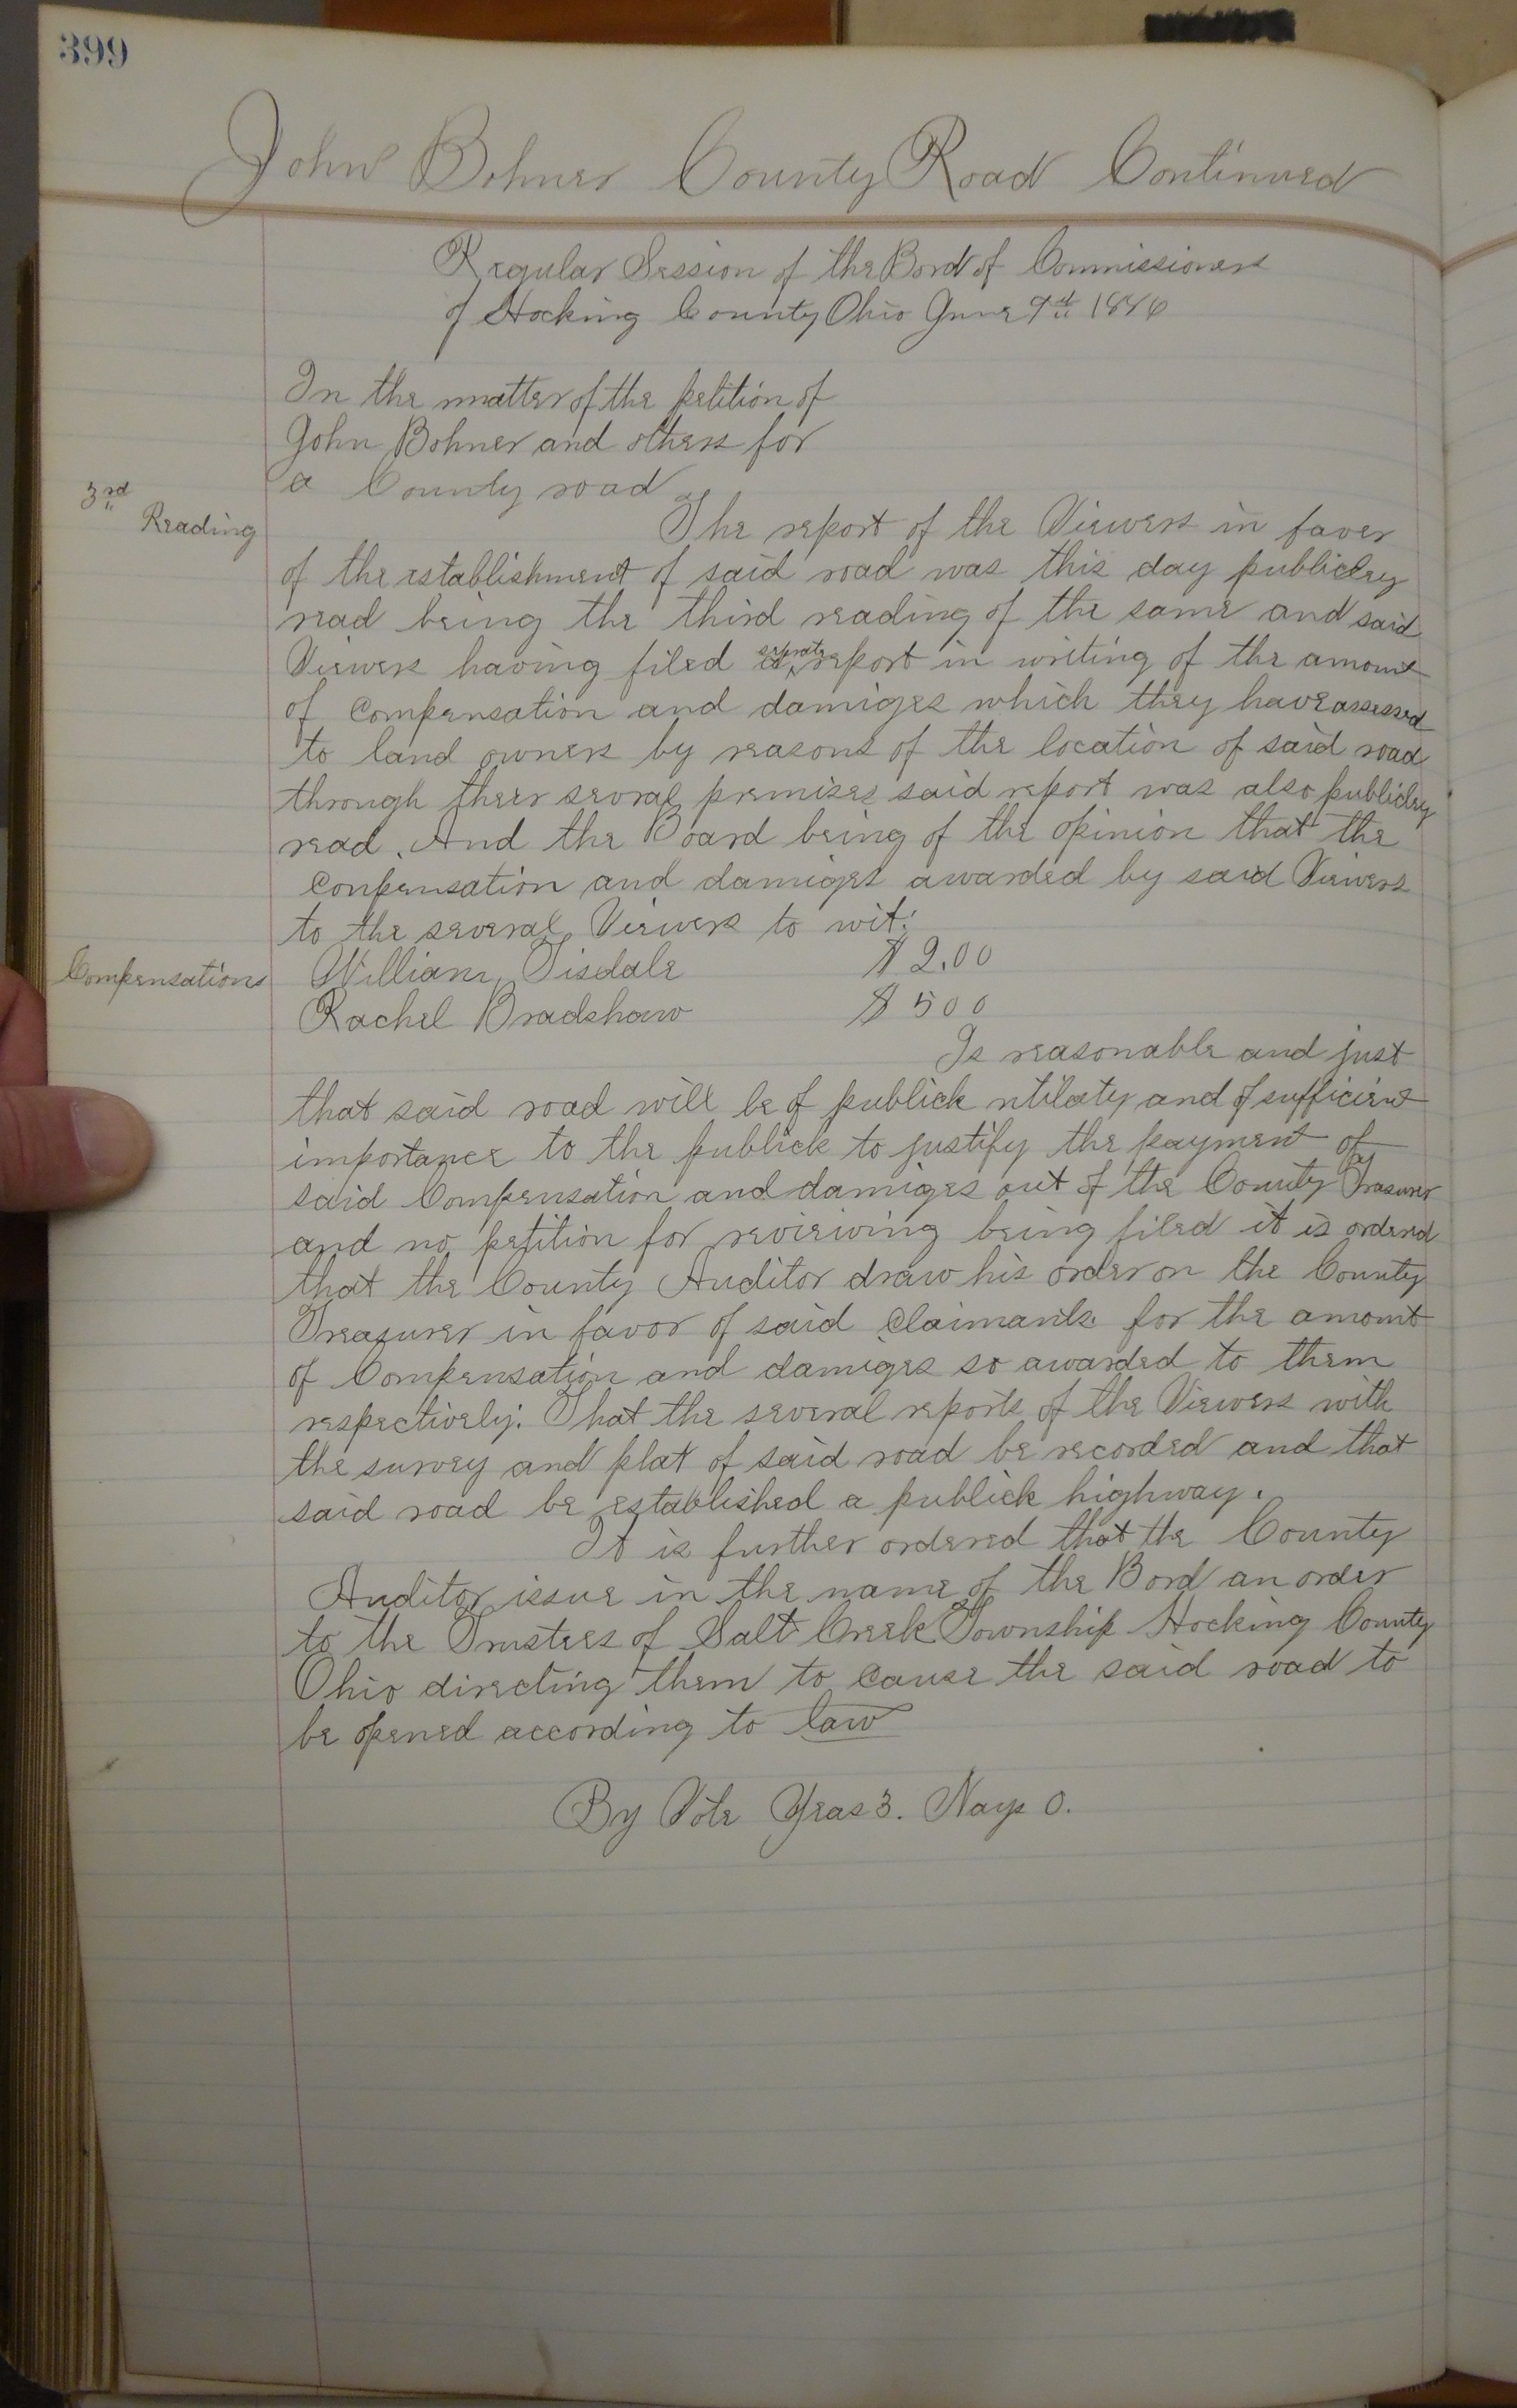 399
John Bohner County Road Continued
Regular Session of the Bord of Commissioners
of Hocking County Ohio June 9th 1886
In the matter of the petition of
John Bohner and others for
a County road
3rd
Reading
The report of the Viewers in faver
of the establishment of said road was this day publicley
read being the third reading of the same and said
Viewers having filed a seprate report in writing of the amount
of Compensation and damiges which they have assessed
to land owners by reasons of the location of said road
through their sevral premises said report was also publicley
read. And the Board being of the opinion that the
Conpensation and damiges awarded by said Viewers
to the several Viewers to wit:
Compensations
William Tisdale $2.00
Rachel Bradshaw $500
Is reasonable and just
that said road will be of publick utilaty and of sufficient
importance to the publick to justify the payment of
said Compensation and damiges out of the County Trasurer
and no petition for reviewing being filed it is ordered
that the County Auditor draw his order on the County
Treasurer in favor of said Claimants for the amount
of Compensation and damiges so awarded to them
respectively: That the several reports of the Viewers with
the survey and plat of said road be recorded and that
said road be established a publick highway.
It is further ordered that the County
Auditor issue in the name of the Bord an order
to the Trustees of Salt Creek Township Hocking County
Ohio directing them to Cause the said road to
be opened according to law
By Vote Yeas 3. Nays 0.